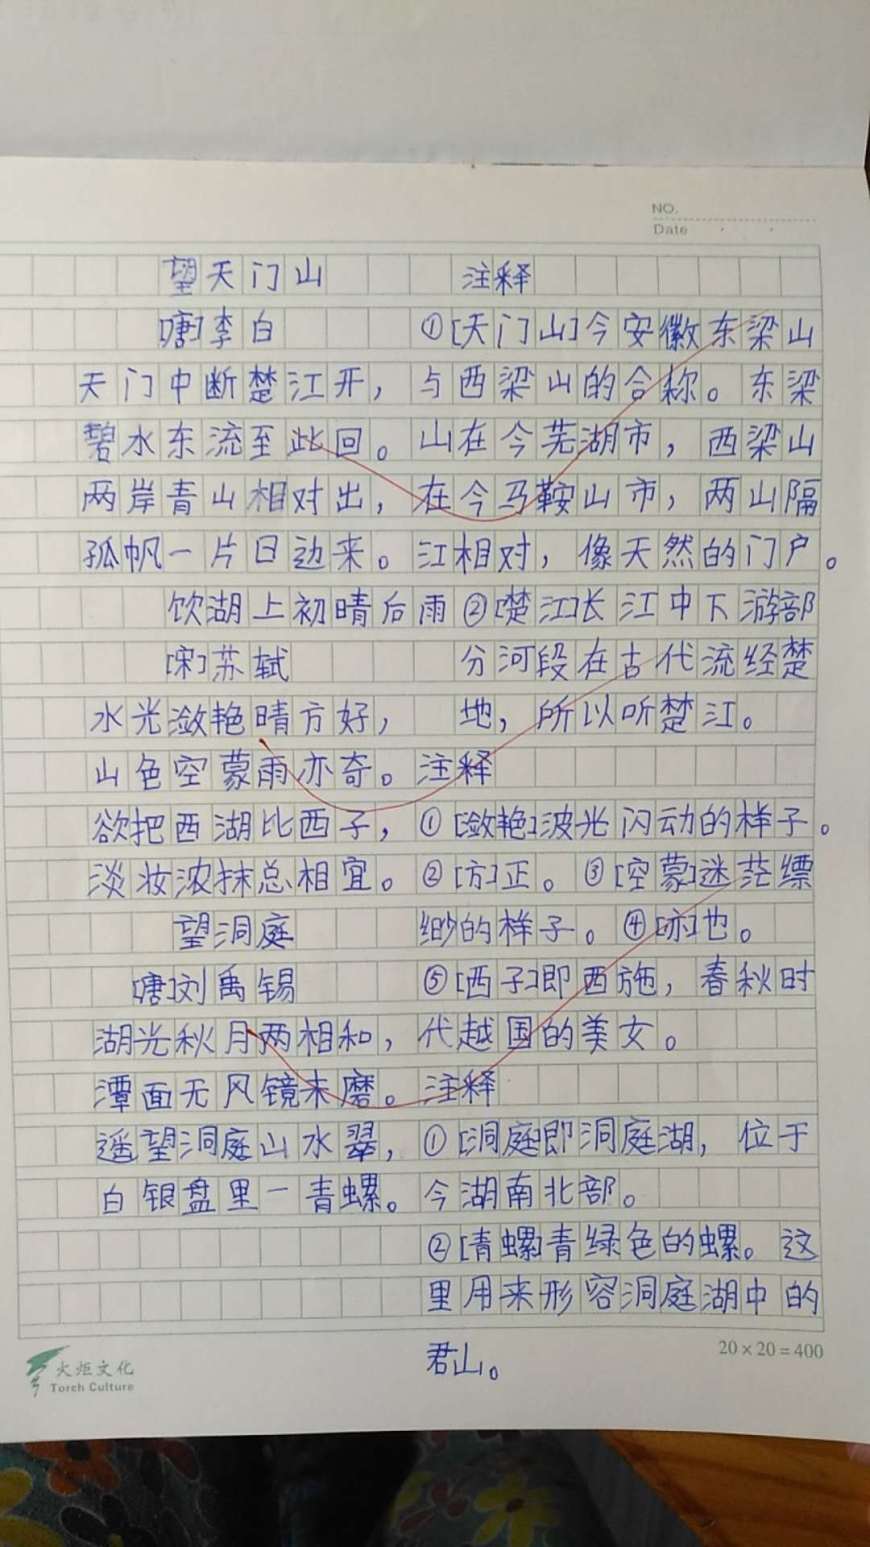 NO.
Date
望天门山
[唐]李白
天门中断楚江开,
碧水东流至此回。
两岸青山相对出,
孤帆一片日边来。
注释
①[天门山]今安徽东梁山
与西梁山的合称。东梁
山在今芜湖市,西梁山
在今马鞍山市,两山隔
江相对,像天然的门户。
②[楚江]长江中下游部
分河段在古代流经楚
地,所以听楚江。
饮湖上初晴后雨
[宋]苏轼
水光潋艳晴方好,
山色空蒙雨亦奇。
欲把西湖比西子,
淡妆浓抹总相宜。
注释
①[潋艳]波光闪动的样子。
②[方]正。③[空蒙]迷茫缥
缈的样子。④[亦]也。
⑤[西子]即西施,春秋时
代越国的美女。
望洞庭
[唐]刘禹锡
湖光秋月两相和,
潭面无风镜未磨。
遥望洞庭山水翠,
白银盘里一青螺。
注释
①[洞庭]即洞庭湖,位于
今湖南北部。
②[青螺]青绿色的螺。这
里用来形容洞庭湖中的
君山。
火炬文化
Torch Culture
20×20=400